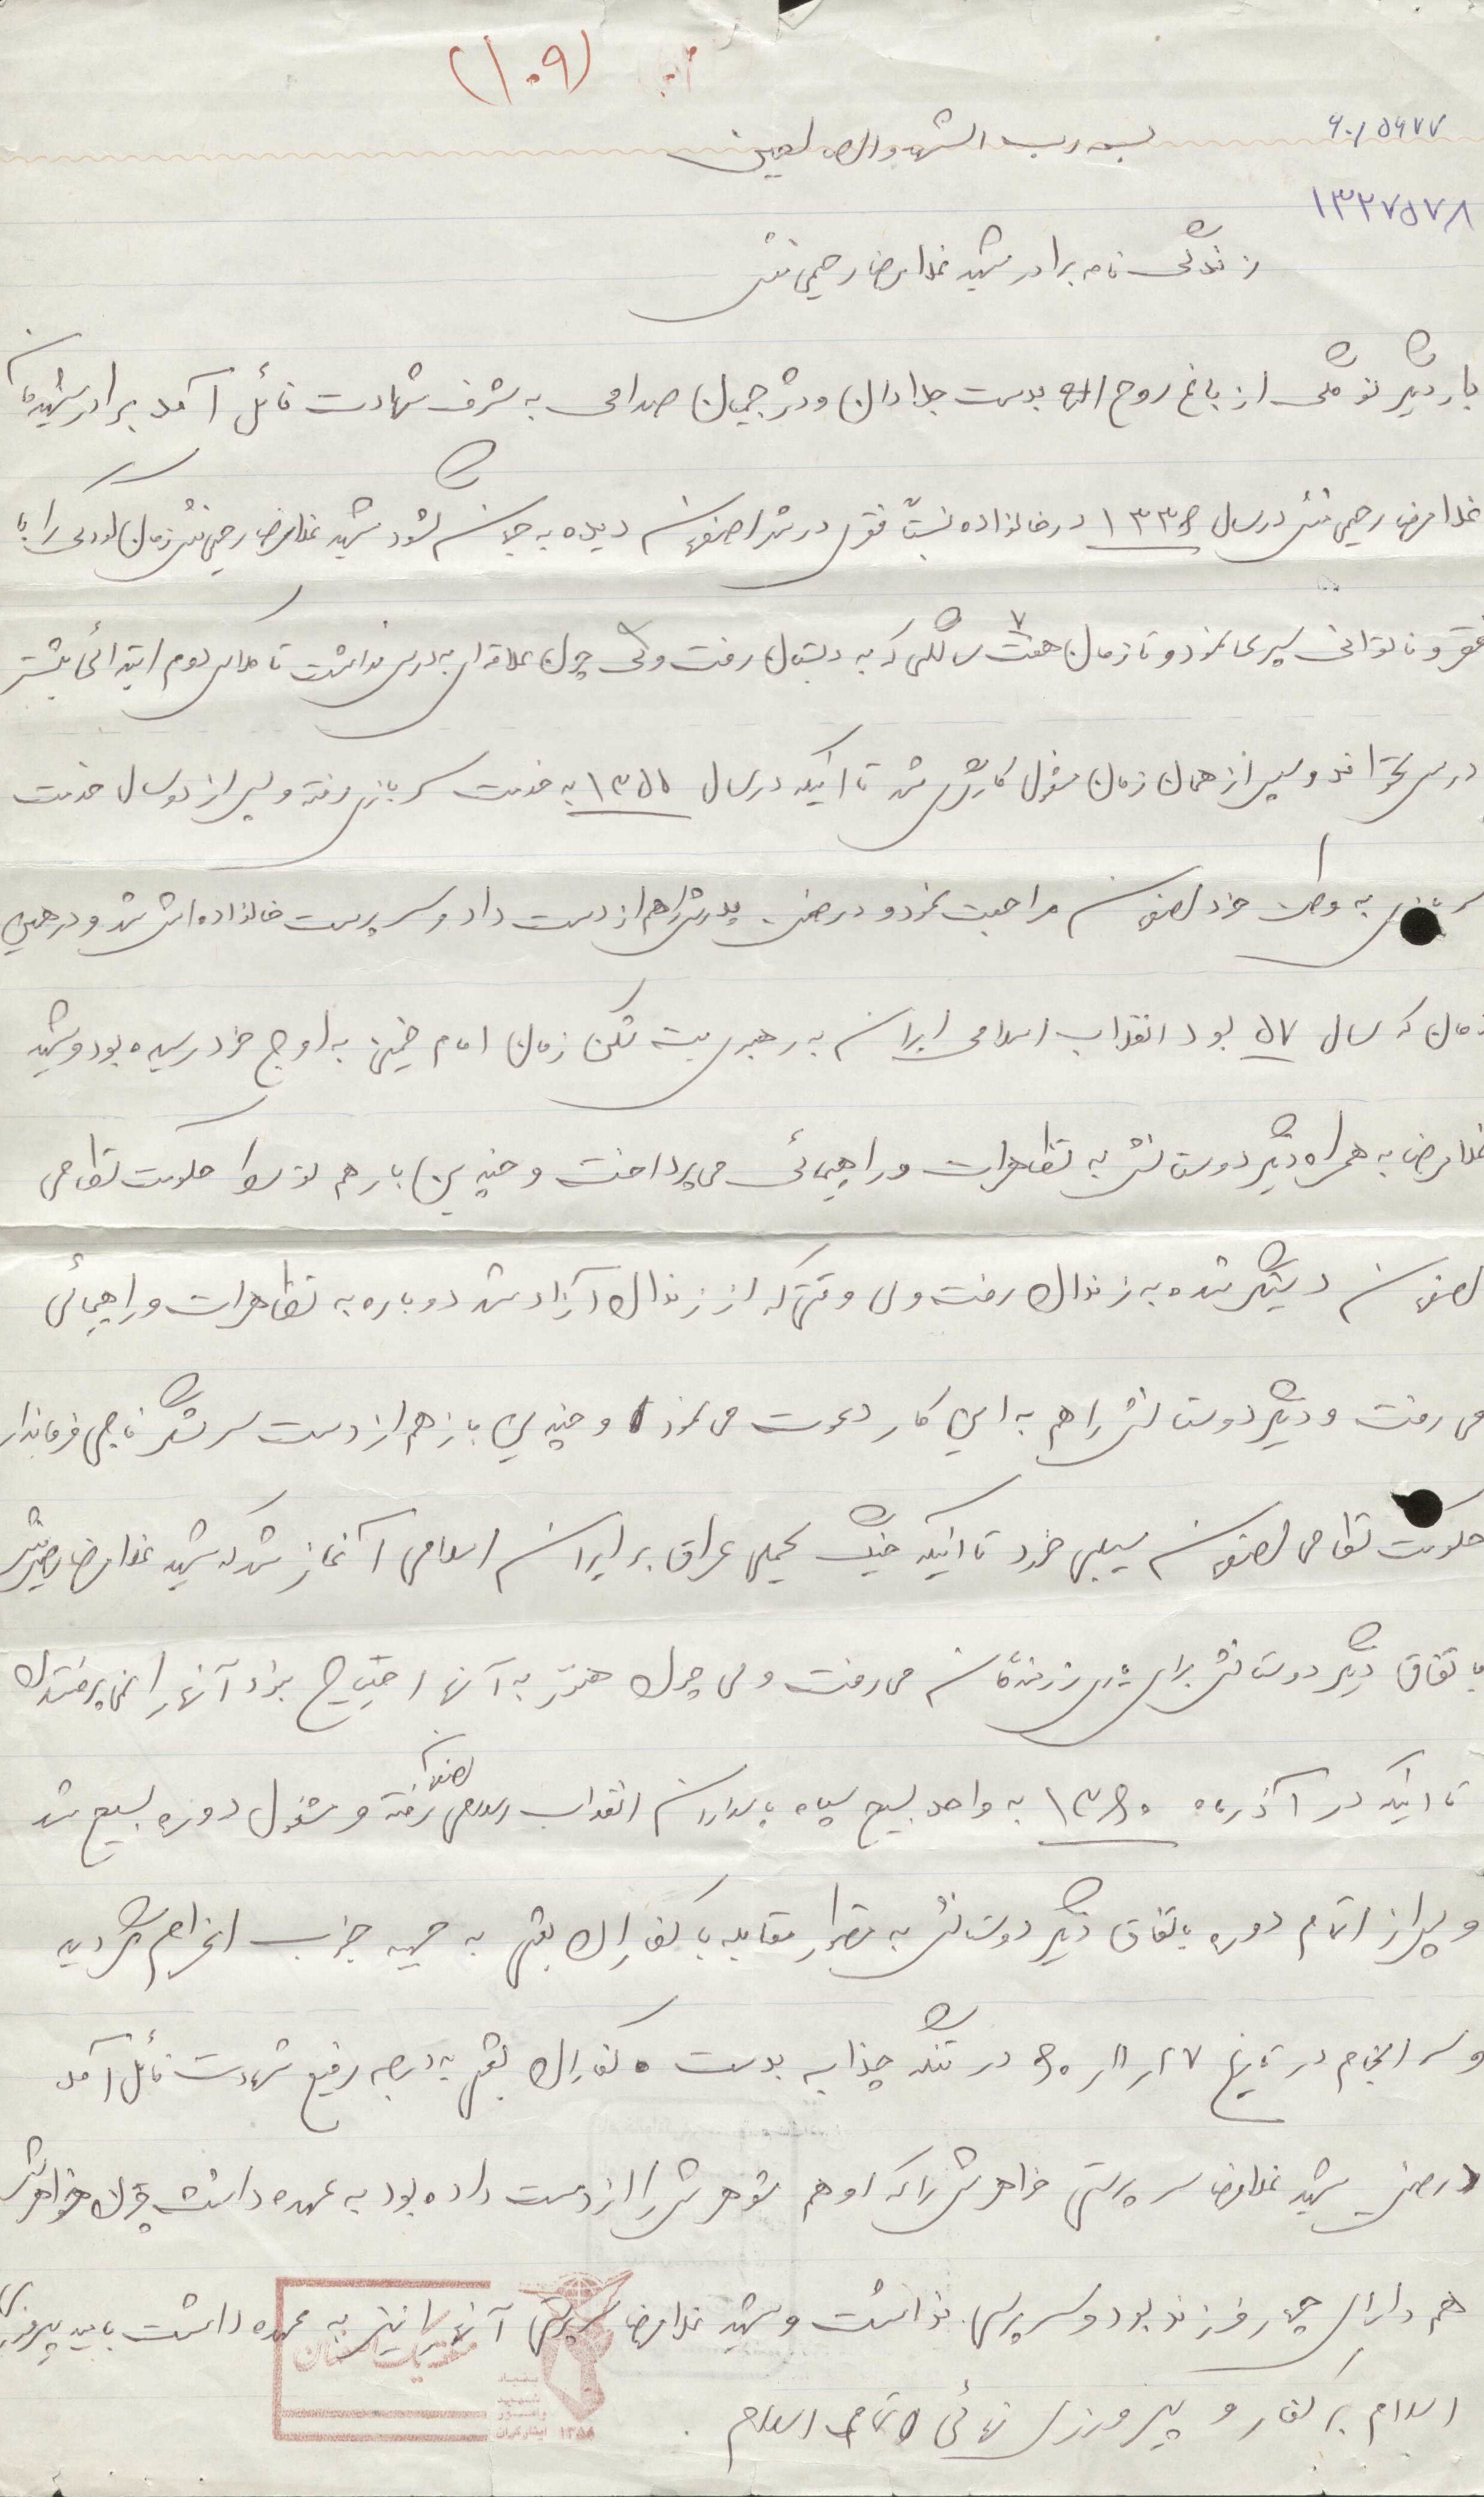 (۱۰۹)
۶۰/۵۶۷۷
بسمه رب الشهدا و الصالحین
۱۳۲۷۵۷۸
زندگی نامه برادر شهید غلامرضا رحیمی منش
بار دیگر نو گلی از باغ روح الله بدست جلادان و دژخیمان صدامی به شرف شهادت نائل آمد برادر شهیدمان
غلامرضا رحیمی منش در سال ۱۳۳۶ در خانواده نسبتاً فقیر در شهر اصفهان دیده به جهان گشود شهید غلامرضا رحیمی منش زمان کودکی را با
فقر و ناتوانی سپری نمود و تا زمان هفت ۷ سالگی که به دبستان رفت ولی چون علاقه ای به درس نداشت تا کلاس دوم ابتدائی بیشتر
درس نخواند و پس از همان زمان مشغول کارگری شد تا اینکه در سال ۱۳۵۵ به خدمت سربازی رفته و پس از دو سال خدمت
سربازی به وطن خود اصفهان مراجعت نمود و در ضمن پدرش را هم از دست داد و سرپرست خانواده اش شد و در همین
زمان که سال ۵۷ بود انقلاب اسلامی ایران به رهبری بت شکن زمان امام خمینی به اوج خود رسیده بود و شهید
غلامرضا به همراه دیگر دوستانش به تظاهرات و راهپیمائی می پرداخت و چندین بار هم توسط حکومت نظامی
اصفهان دستگیر شده به زندان رفت ولی وقتی که از زندان آزاد شد دوباره به تظاهرات و راهپیمائی
می رفت و دیگر دوستانش را هم به این کار دعوت می نمود و چندین بار هم از دست سرلشگر ناجی فرماندار
حکومت نظامی اصفهان سیلی خورد تا اینکه جنگ تحمیلی عراق بر ایران اسلامی آغاز شد که شهید غلامرضا رحیمی منش
با تفاق دیگر دوستانش برای یاری رزمندگان می رفت ولی چون هنوز به آنها احتیاج نبود آنها را نمی پذیرفتند
تا اینکه در آذرماه ۱۳۶۰ به واحد بسیج سپاه پاسداران انقلاب اسلامی اصفهان رفته و مشغول دوره بسیج شد
و پس از اتمام دوره باتفاق دیگر دوستانش به منظور مقابله با کفاران بعثی به جبهه جنوب اعزام گردید
و سرانجام در تاریخ ۲۷ر۱۱ر۶۰ در تنگه چذابه بدست کفاران بعثی به درجه رفیع شهادت نائل آمد
در ضمن شهید غلامرضا سرپرستی خواهرش را که او هم شوهرش را از دست داده بود به عهده داشت چون خواهرش
هم دارای چهار فرزند بود و سرپرستی نداشت و شهید غلامرضا سرپرستی آنها را نیز به عهده داشت بامید پیروزی
اسلام بر کفار و پیروزی نهائی اسلام.
۱۳۵۸